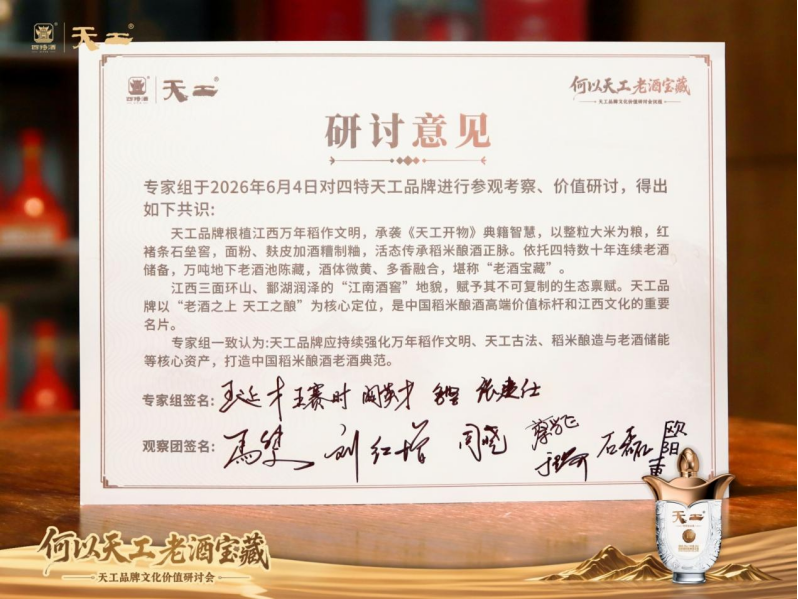 四特酒 天工
四特酒 天工
何以天工 老酒宝藏
天工品牌文化价值研讨会
研讨意见
专家组于2026年6月4日对四特天工品牌进行参观考察、价值研讨，得出
如下共识：
天工品牌根植江西万年稻作文明，承袭《天工开物》典籍智慧，以整粒大米为粮，红
褚条石垒窖，面粉、麸皮加酒糟制釉，活态传承稻米酿酒正脉。依托四特数十年连续老酒
储备，万吨地下老酒池陈藏，酒体微黄、多香融合，堪称“老酒宝藏”。
江西三面环山、鄱湖润泽的“江南酒窖”地貌，赋予其不可复制的生态禀赋。天工品
牌以“老酒之上 天工之酿”为核心定位，是中国稻米酿酒高端价值标杆和江西文化的重要
名片。
专家组一致认为:天工品牌应持续强化万年稻作文明、天工古法、稻米酿造与老酒储能
等核心资产，打造中国稻米酿酒老酒典范。
专家组签名: 王延才 王赛时 张建仕
观察团签名: 马斐 刘红增 石磊 欧阳
天工
何以天工 老酒宝藏
天工品牌文化价值研讨会